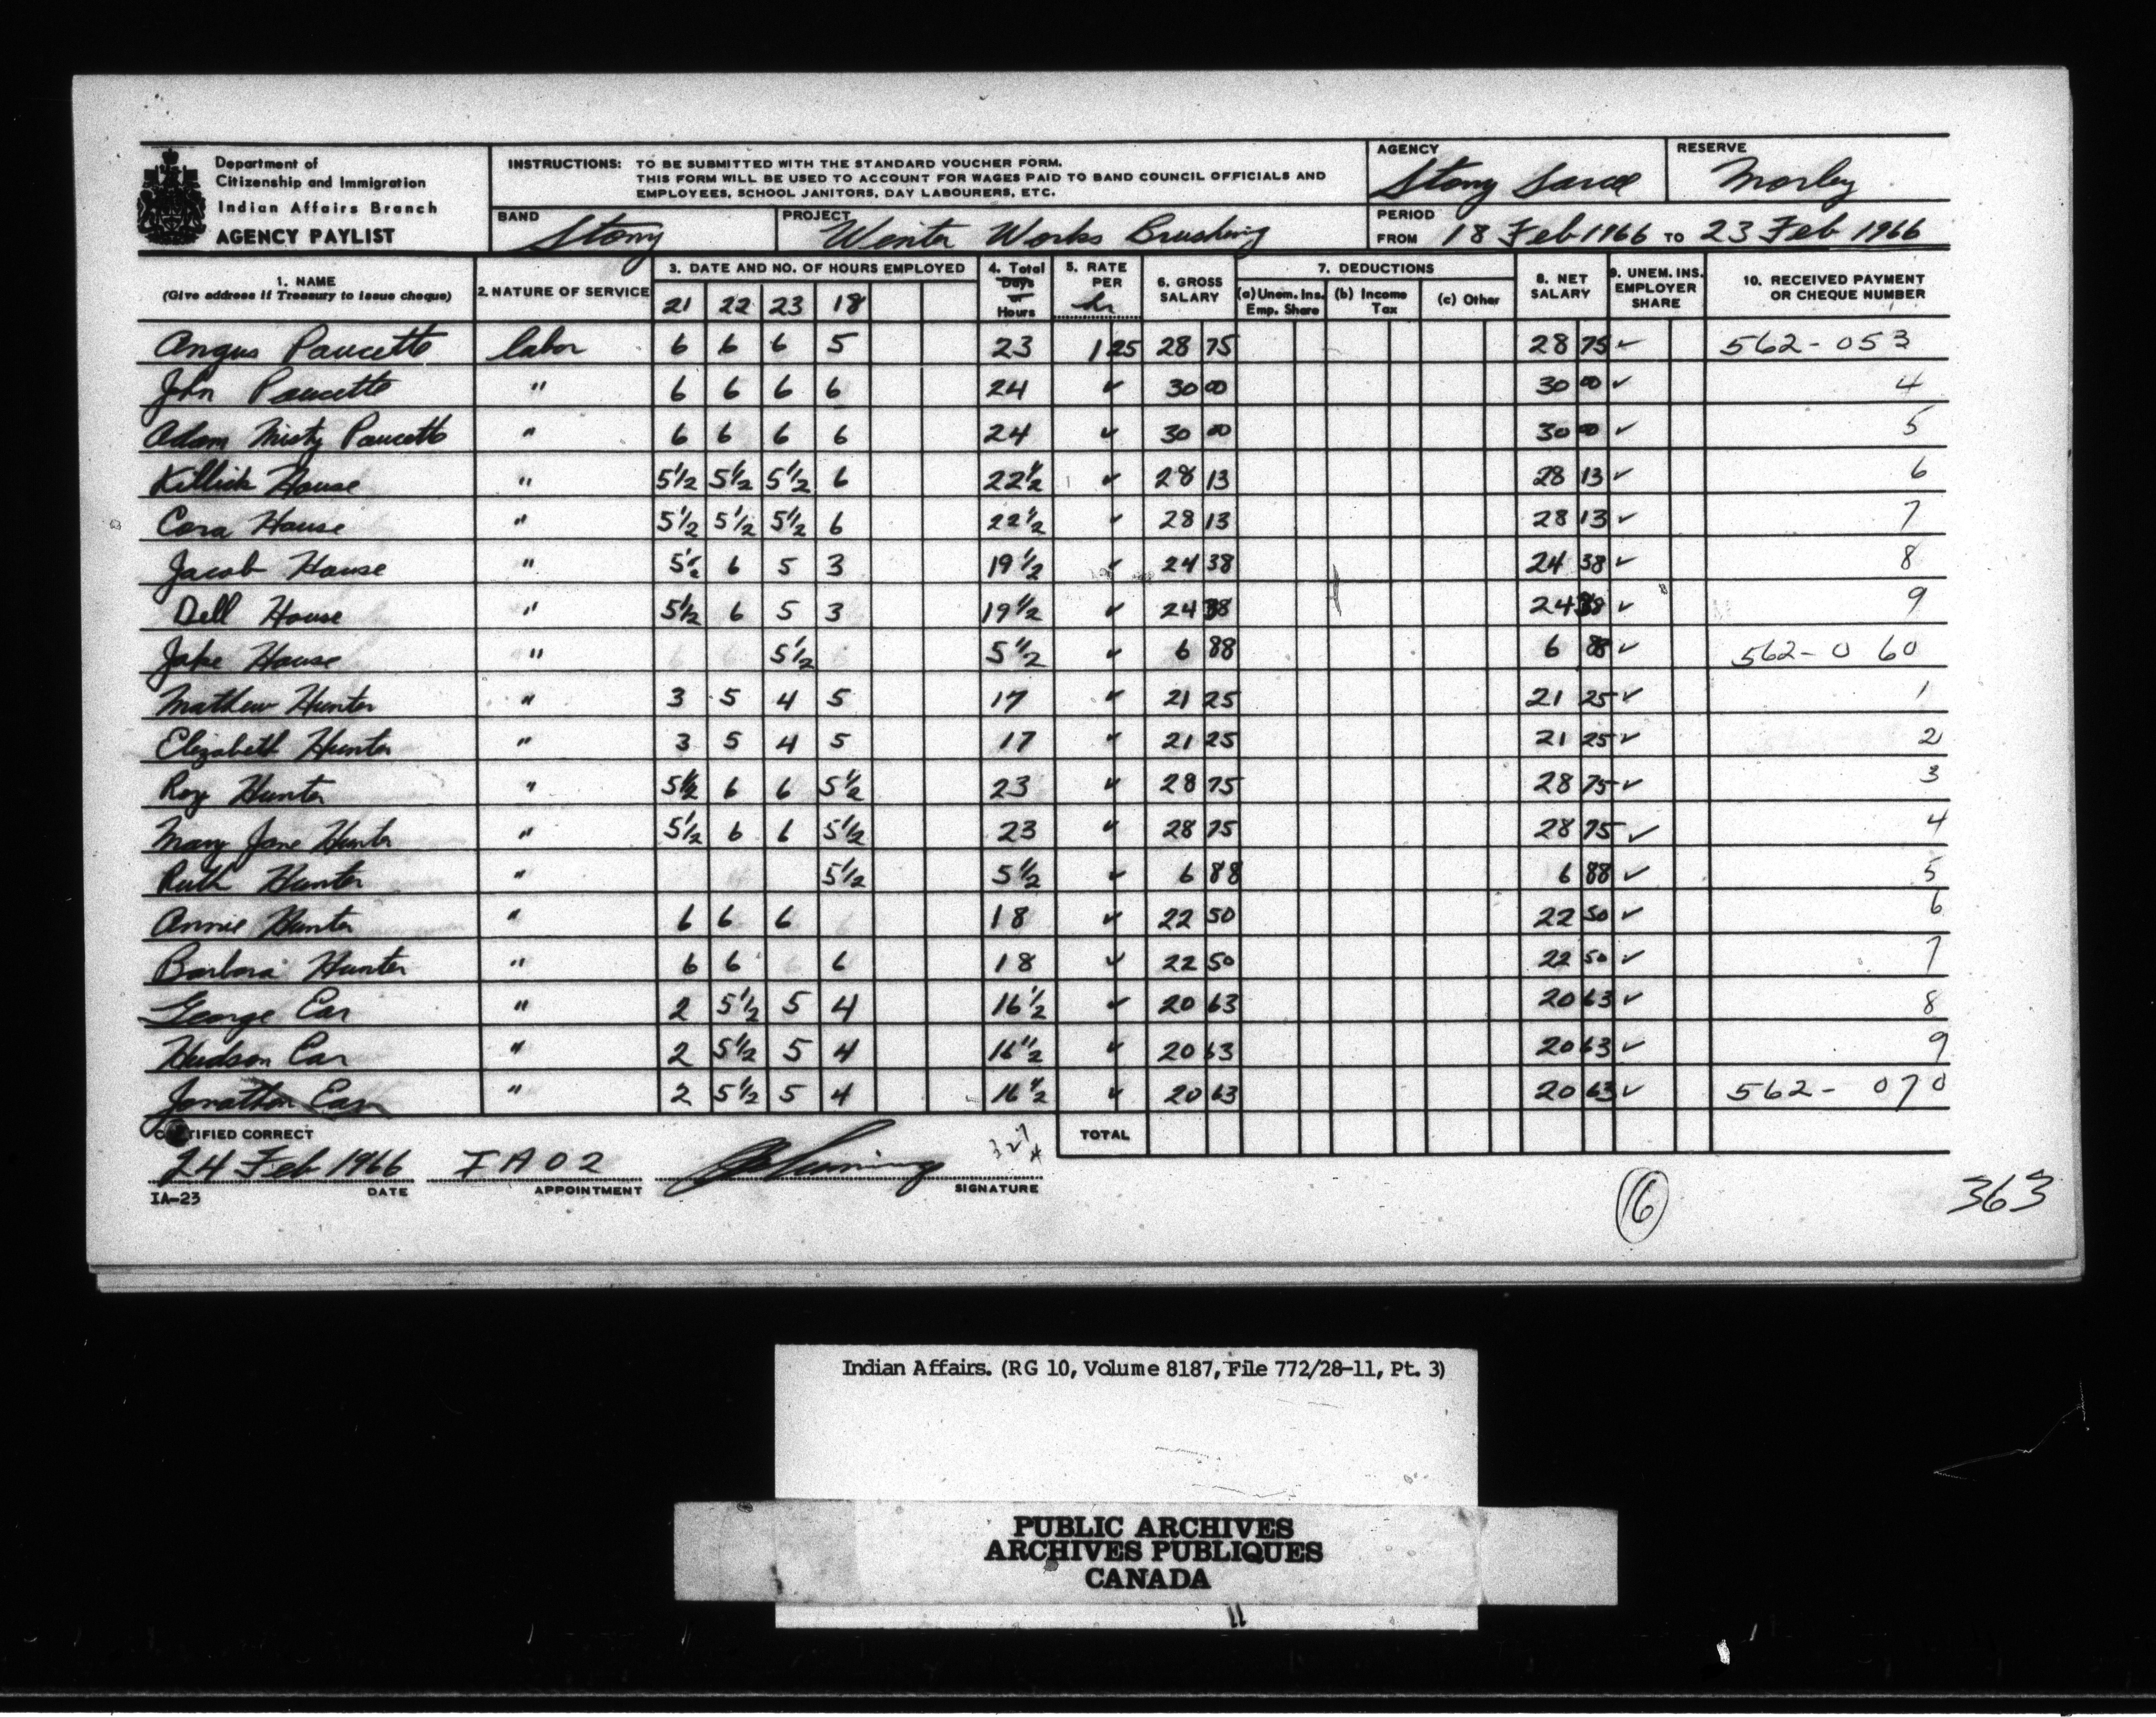 Department of
Citizenship and Immigration
Indian Affairs Branch
AGENCY PAYLIST
INSTRUCTIONS: TO BE SUBMITTED WITH THE STANDARD VOUCHER FORM.
THIS FORM WILL BE USED TO ACCOUNT FOR WAGES PAID TO BAND COUNCIL OFFICIALS AND
EMPLOYEES, SCHOOL JANITORS, DAY LABOURERS, ETC.
AGENCY Stony Sarcee
RESERVE Morley
BAND Stony
PROJECT Winter Works Brushing
PERIOD FROM 18 Feb 1966 TO 23 Feb 1966
1. NAME (Give address if Treasury to issue cheque)
2. NATURE OF SERVICE
3. DATE AND NO. OF HOURS EMPLOYED
21 22 23 18
4. Total Days or Hours
5. RATE PER hr
6. GROSS SALARY
7. DEDUCTIONS
(a) Unem. Ins. Emp. Share (b) Income Tax (c) Other
8. NET SALARY
9. UNEM. INS. EMPLOYER SHARE
10. RECEIVED PAYMENT OR CHEQUE NUMBER
Angus Poucette labor 6 6 6 5 23 1 25 28 75 28 75 ✓ 562-053
John Poucette " 6 6 6 6 24 ✓ 30 00 30 00 ✓ 4
Adam Misty Poucette " 6 6 6 6 24 ✓ 30 00 30 00 ✓ 5
Killick House " 5½ 5½ 5½ 6 22½ ✓ 28 13 28 13 ✓ 6
Cora House " 5½ 5½ 5½ 6 22½ ✓ 28 13 28 13 ✓ 7
Jacob House " 5½ 6 5 3 19½ ✓ 24 38 24 38 ✓ 8
Dell House " 5½ 6 5 3 19½ ✓ 24 38 24 38 ✓ 9
Jake House " 5½ 5½ ✓ 6 88 6 88 ✓ 562-060
Mathew Hunter " 3 5 4 5 17 ✓ 21 25 21 25 ✓ 1
Elizabeth Hunter " 3 5 4 5 17 ✓ 21 25 21 25 ✓ 2
Roy Hunter " 5½ 6 6 5½ 23 ✓ 28 75 28 75 ✓ 3
Mary Jane Hunter " 5½ 6 6 5½ 23 ✓ 28 75 28 75 ✓ 4
Ruth Hunter " 5½ 5½ ✓ 6 88 6 88 ✓ 5
Annie Hunter " 6 6 6 18 ✓ 22 50 22 50 ✓ 6
Barbara Hunter " 6 6 6 18 ✓ 22 50 22 50 ✓ 7
George Ear " 2 5½ 5 4 16½ ✓ 20 63 20 63 ✓ 8
Hudson Ear " 2 5½ 5 4 16½ ✓ 20 63 20 63 ✓ 9
Jonathan Ear " 2 5½ 5 4 16½ ✓ 20 63 20 63 ✓ 562-070
CERTIFIED CORRECT
TOTAL
24 Feb 1966 IA02
IA-23 DATE APPOINTMENT SIGNATURE
16
363
Indian Affairs. (RG 10, Volume 8187, File 772/28-11, Pt. 3)
PUBLIC ARCHIVES
ARCHIVES PUBLIQUES
CANADA